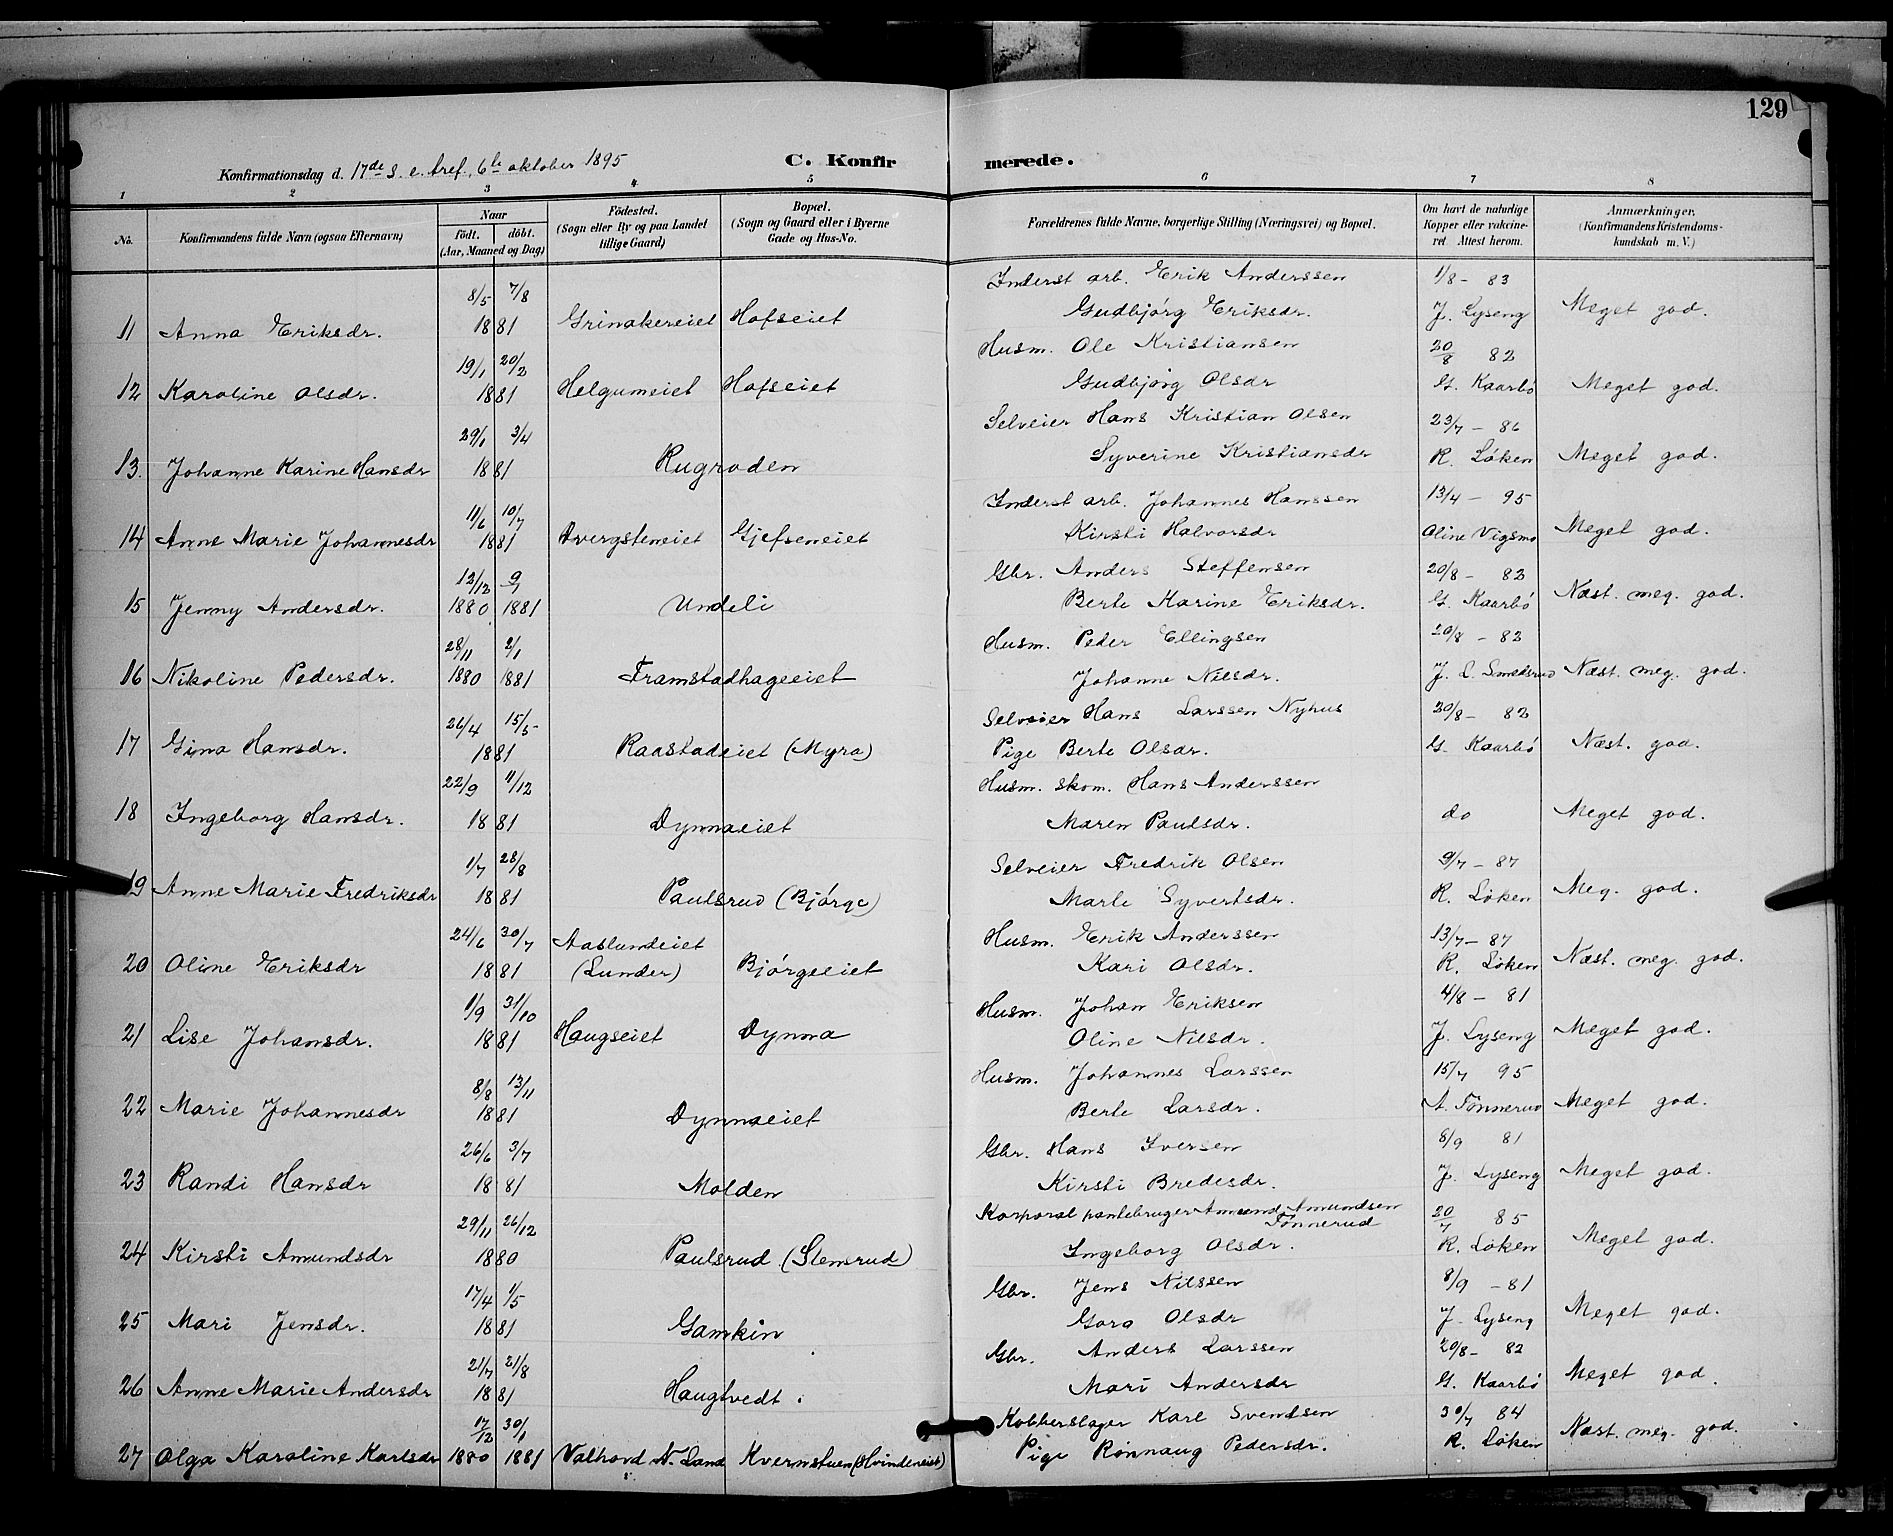 129
Konfirmationsdag d. 17de S. e. tref. 6te oktober 1895
C. Konfirmerede.
1 2 3 4 5 6 7 8
No. Konfirmandens fulde Navn (ogsaa Efternavn) Naar födt. döbt. (Aar, Maaned og Dag) Födested. (Sogn eller By og paa Landet tillige Gaard) Bopæl. (Sogn og Gaard eller i Byerne Gade og Hus-No. Forældrenes fulde Navne, borgerlige Stilling (Næringsvei) og Bopæl. Om havt de naturlige Kopper eller vakcineret Attest herom. Anmærkninger. (Konfirmandens Kristendomskundskab m. V.)
8/5 7/8 Inderst arb. Erik Anderssen 1/8 - 83
11 Anna Eriksdr. 1881 Grinakereiet Hofseiet Gudbjørg Eriksdr. J. Lyseng Meget god.
19/1 20/2 Husm. Ole Kristiansen 20/8 82
12 Karoline Olsdr. 1881 Helgumeiet Hofseiet Gudbjørg Olsdr G. Kaarbø Meget god.
29/1 3/4 Selveier Hans Kristian Olsen 23/7 - 86
13. Johanne Karine Hansdr 1881 Rugraden Syverine Kristiansdr R. Løken Meget god.
11/6 10/7 Inderst arb. Johannes Hanssen 13/4 - 95
14 Anne Marie Johannesdr 1881 Dvergsteneiet Gjefseneiet Kirsti Halvorsdr Oline Vigsmo Meget god.
12/12 9/1 Gbr. Anders Steffensen 20/8 - 82
15 Jenny Andersdr. 1880 1881 Undeli Berte Karine Eriksdr. G. Kaarbø Næst. meg. god.
28/11 2/1 Husm. Peder Ellingsen 20/8 - 82
16 Nikoline Pedersdr. 1880 1881 Framstadhageeiet Johanne Nilsdr. J. L. Smedsrud Næst. meg. god.
26/4 15/5 Selveier Hans Larssen Nyhus 20/8 - 82
17 Gina Hansdr. 1881 Raastadeiet (Myra) Pige Berte Olsdr. G. Kaarbø Næst. god.
22/9 4/12 Husm. skom. Hans Anderssen
18 Ingeborg Hansdr. 1881 Dynnaeiet Maren Paulsdr. do Meget god.
1/7 28/8 Selveier Fredrik Olsen 9/7 - 87
19 Anne Marie Fredriksdr 1881 Paulsrud (Bjørge) Marte Syvertsdr. R. Løken Meg. god.
24/6 30/7 Aaslundeiet Husm. Erik Anderssen 13/7 - 87
20 Oline Eriksdr 1881 (Lunder) Bjørgeeiet Kari Olsdr. R. Løken Næst. meg. god.
1/9 31/10 Husm. Johan Eriksen 4/8 - 81
21 Lise Johansdr. 1881 Haugseiet Dynna Oline Nilsdr. J. Lyseng Meget god.
8/8 13/11 Husm. Johannes Larssen 15/7 95
22 Marie Johannesdr 1881 Dynnaeiet Berte Larsdr. A. Tønnerud Meget god.
26/6 3/7 Gbr. Hans Iversen 8/9 81
23 Randi Hansdr 1881 Molden Kirsti Bredesdr. J. Lyseng Meget god.
29/11 26/12 Korporal pantebruger Amund Amundsen Tønnerud 20/7 85
24 Kirsti Amundsdr 1880 Paulsrud (Stensrud) Ingeborg Olsdr. R. Løken Meget god.
17/4 1/5 Gbr. Jens Nilssen 8/9 - 81
25 Mari Jensdr. 1881 Gamkin Goro Olsdr J. Lyseng Meget god.
21/7 21/8 Gbr. Anders Larssen 20/8 - 82
26 Anne Marie Andersdr 1881 Haugtvedt. Mari Andersdr G. Kaarbø Meget god.
17/12 30/1 Kobberslager Karl Svendsen 30/7 84
27 Olga Karoline Karlsdr 1880 1881 Valhovd N. Land Kvernstuen (Hvindeneiet) Pige Rønnaug Pedersdr. R. Løken Næst. meg. god.